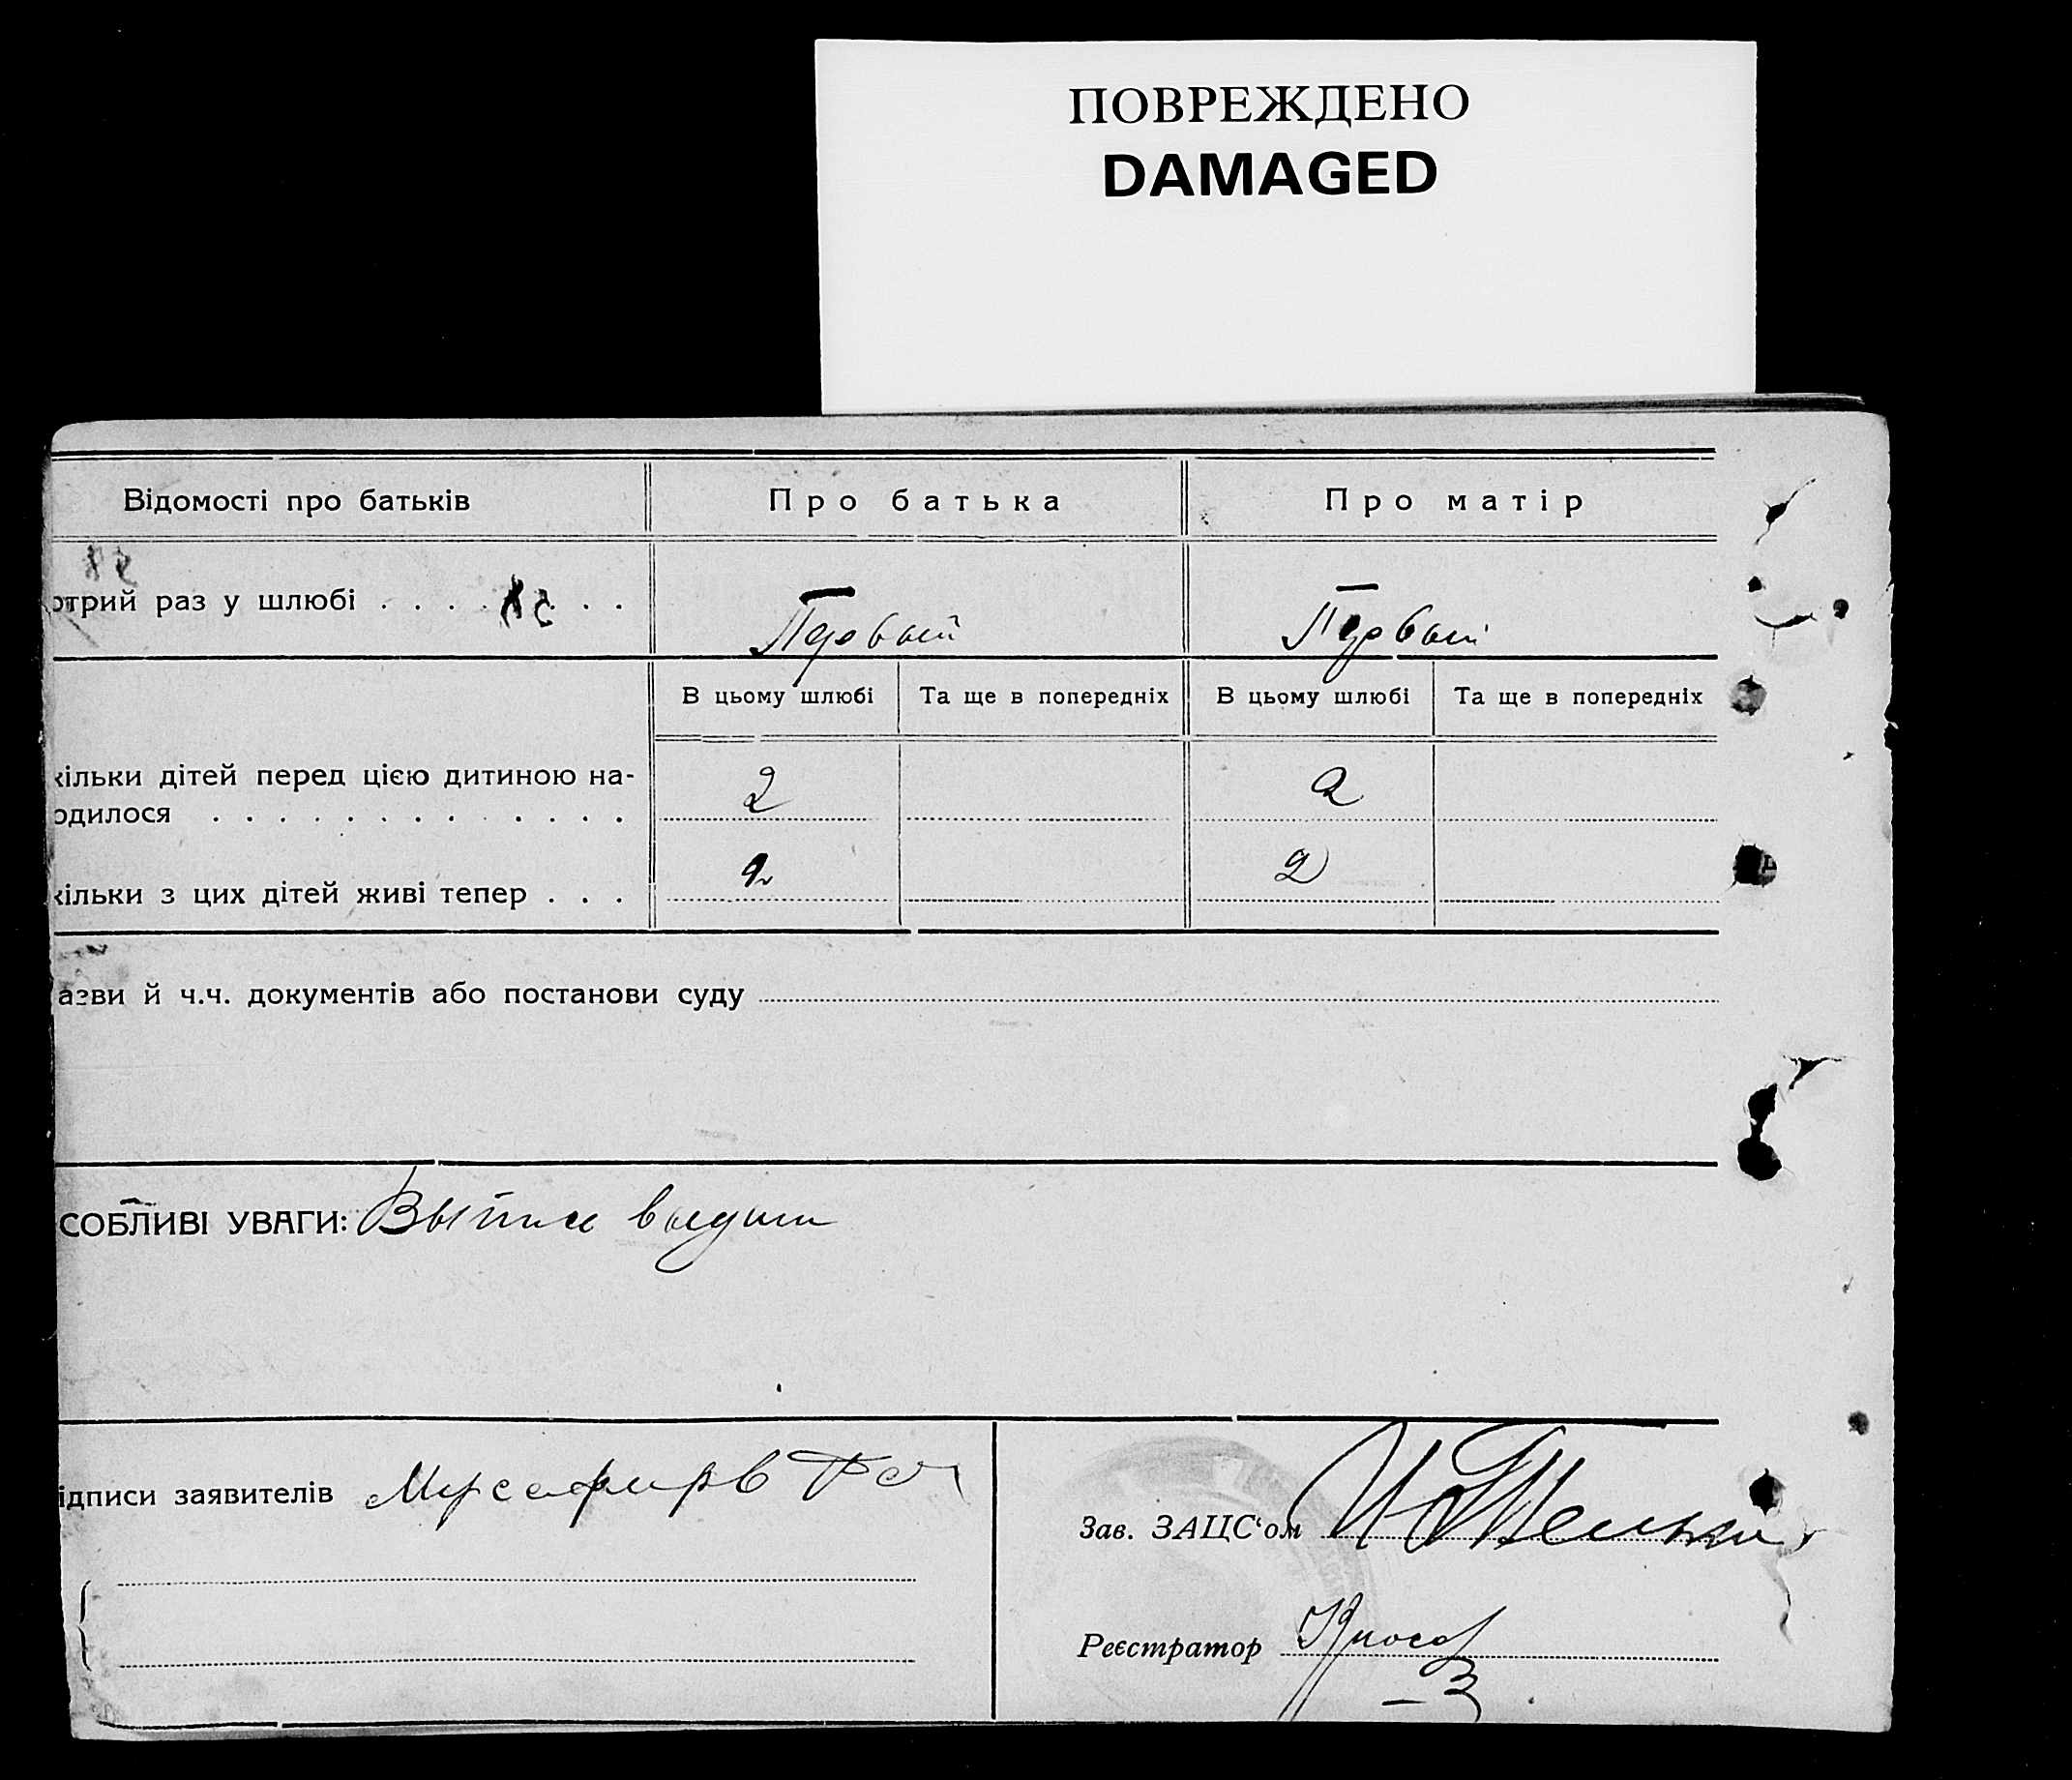 ПОВРЕЖДЕНО
DAMAGED
Відомості про батьків
Про батька
Про матір
отрий раз у шлюбі . . . . . . .
Первый
Первый
В цьому шлюбі
Та ще в попередніх
В цьому шлюбі
Та ще в попередніх
кільки дітей перед цією дитиною на-
одилося . . . . . . . . . . . . .
2
2
кільки з цих дітей живі тепер . . .
2
2
азви й ч.ч. документів або постанови суду
СОБЛИВІ УВАГИ:
ідписи заявителів
Зав. ЗАЦС‘ом
Реєстратор